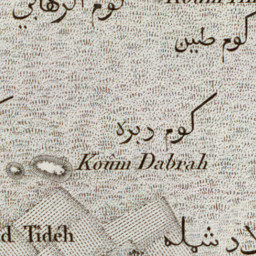 كوم الرهابي
كوم طين
كوم ربره
Koum Dabrah
d Tidéh
لاد شمله